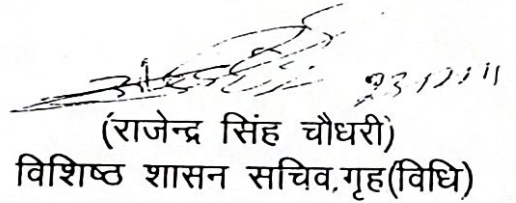 (राजेन्द्र सिंह चौधरी)
विशिष्ठ शासन सचिव,गृह(विधि)